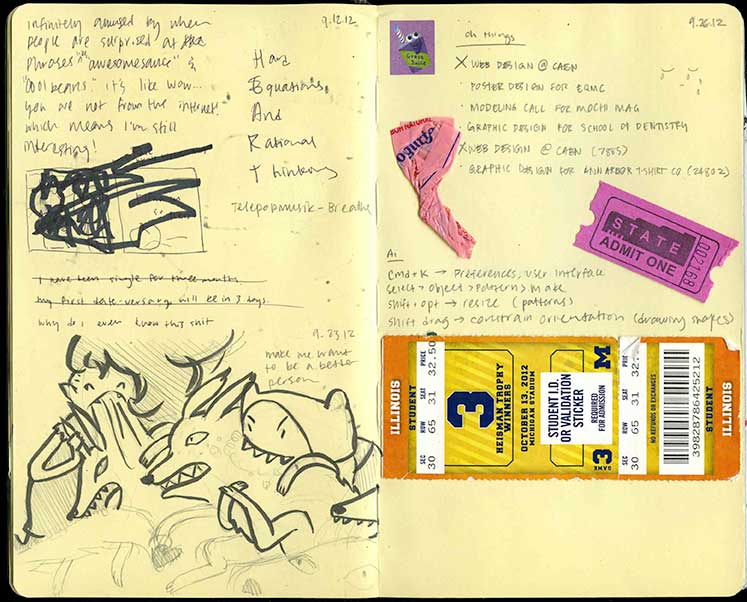 infinitely amused by when
people are surprised at
phrases "awesomesauce" &
"cool beans." it's like wow...
you are not from the internet!
which means I'm still
interesting!
9.12.12
Hard
Equations
And
Rational
Thinking
Telepopmusik - Breathe
I have been single for three months.
my first date-versary will be in 3 days.
why do i even know this shit
9.23.12
make me want
to be a better
person.
9.26.12
oh things
X WEB DESIGN @ CAEN
· POSTER DESIGN FOR EQMC
· MODELING CALL FOR MOCHI MAG
· GRAPHIC DESIGN FOR SCHOOL OF DENTISTRY
X WEB DESIGN @ CAEN (7865)
· GRAPHIC DESIGN FOR ANN ARBOR T-SHIRT CO (24802)
NATURAL
ogurt
STATE
ADMIT ONE
002168
Ai
cmd+K → Preferences, user interface
select > object > pattern > make
shift, opt → resize (patterns)
shift drag → constrain orientation (drawing shapes)
ILLINOIS
STUDENT
SEC 30
ROW 65
SEAT 31
PRICE 32.50
3
HEISMAN TROPHY
WINNERS
OCTOBER 13, 2012
MICHIGAN STADIUM
STUDENT I.D.
OR VALIDATION
STICKER
REQUIRED
FOR ADMISSION
M
GAME 3
SEC 30
ROW 65
SEAT 31
32.
NO REFUNDS OR EXCHANGES
39828786425212
STUDENT
ILLINOIS